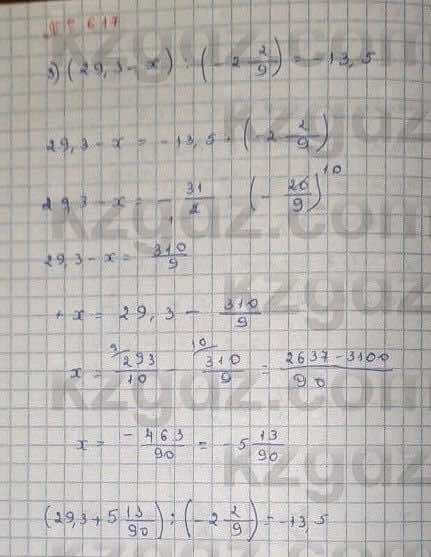 № 617
3) (29,3 - x) : (-2 2/9) = -13,5
29,3 - x = -13,5 · (-2 2/9)
29,3 - x = - 31/2 · (- 20/9)^10
29,3 - x = 310/9
+ x = 29,3 - 310/9
x = ^9/ 293/10 - ^10/ 310/9 = 2637 - 3100/90
x = -463/90 = -5 13/90
(29,3 + 5 13/90) : (-2 2/9) = -13,5
kzgaz